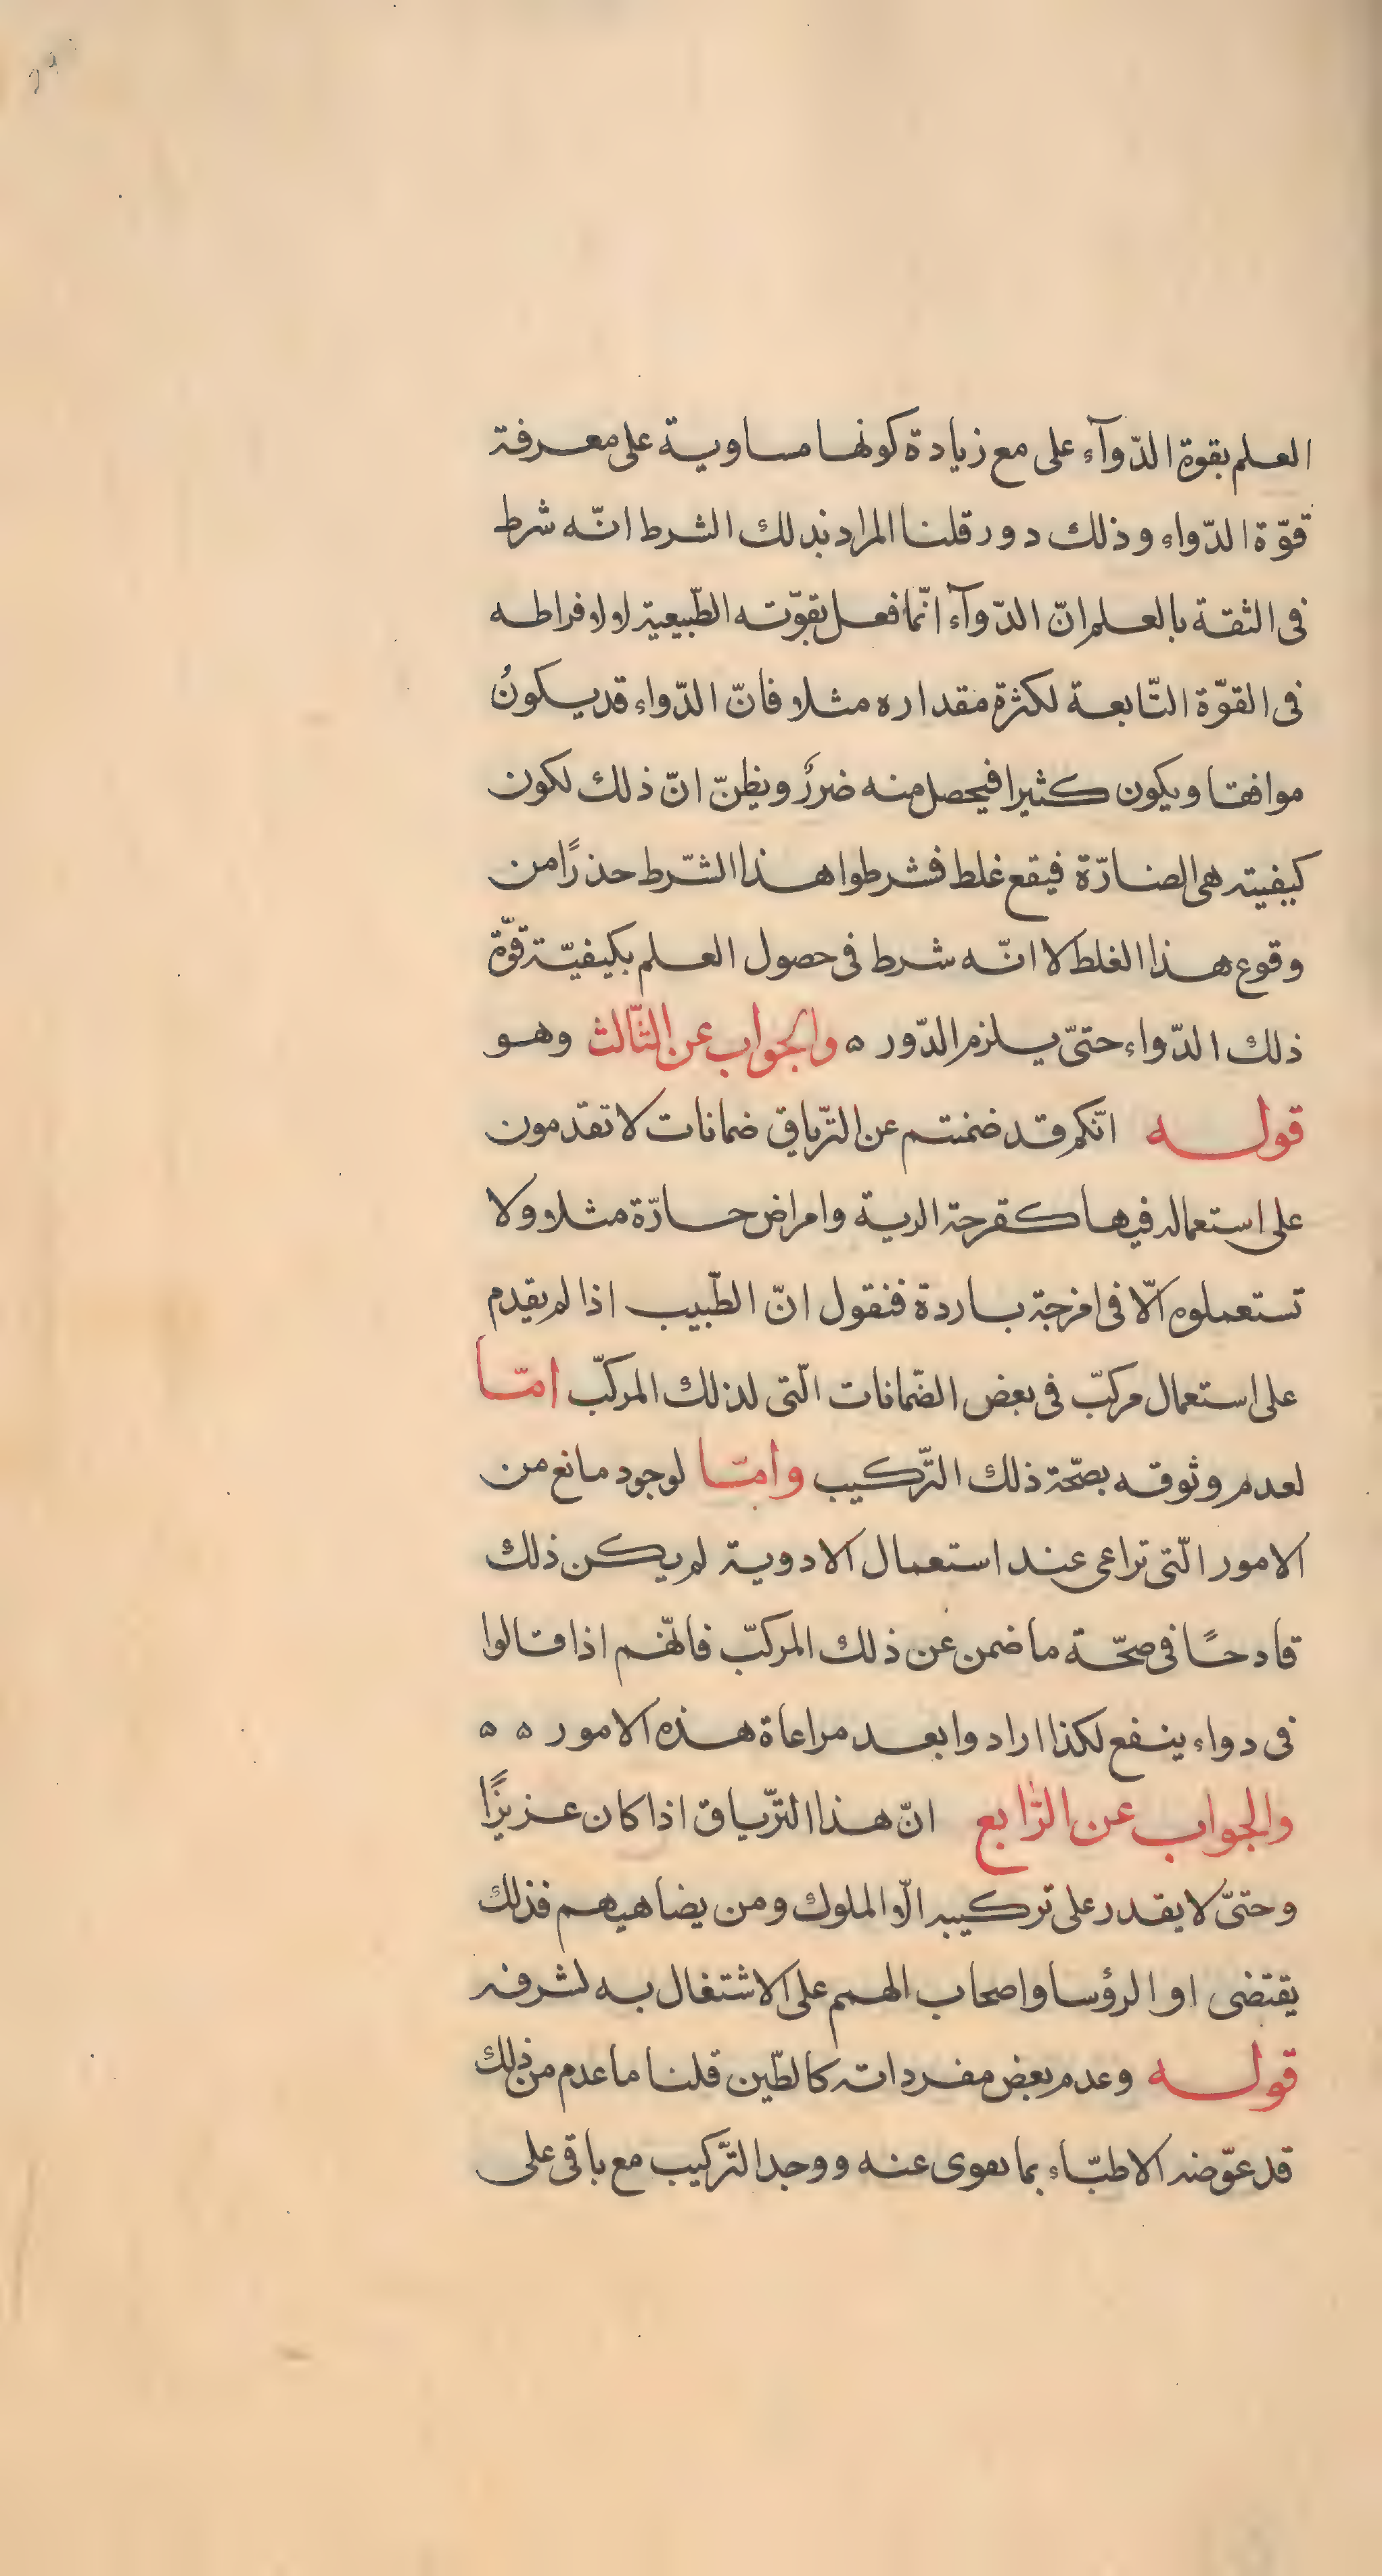 العلم بقوة الدّوآء على مع زيادة كونها مساوية على معرفة
قوّة الدّواء وذلك دور قلنا المراد بذلك الشرط انّه شرط
فى الثقة بالعلم انّ الدّوآء انّما فعل بقوّته الطّبيعية لا لافراطه
فى القوّة التّابعة لكثرة مقداره مثلا فانّ الدّواء قد يكونُ
موافقا ويكون كثيرا فيحصل منه ضررٌ ويظنّ انّ ذلك لكون
كيفيته هى الضارّة فيقع غلط فشرطوا هذا الشّرط حذرًا من
وقوع هذا الغلط لا انّه شرط فى حصول العلم بكيفيّة قوّة
ذلك الدّواء حتىّ يلزم الدّور ه والجواب عن الثّالث وهو
قوله انّكم قد ضمنتم عن التّرياق ضمانات لا تقدمون
على استعماله فيها كقرحة الرية وامراض حارّة مثلا ولا
تستعملوه الّا فى امزجة باردة فنقول انّ الطّبيب اذا لم يقدم
على استعمال مركبّ فى بعض الضّمانات الّتى لذلك المركبّ امّا
لعدم وثوقه بصحّة ذلك التّركيب وامّا لوجود مانع من
الامور الّتى تراعى عند استعمال الادوية لم يكن ذلك
قادحًا فى صحّة ما ضمن عن ذلك المركبّ فانّهم اذا قالوا
فى دواء ينفع لكذا ارادوا بعد مراعاة هذه الامور ه ه
والجواب عن الرّابع انّ هذا التّرياق اذا كان عزيزًا
وحتىّ لا يقدر على تركيبه الّا الملوك ومن يضاهيهم فذلك
يقتضى او الرؤسا واصحاب الهمم على الاشتغال به لشرفه
قوله وعدم بعض مفرداته كالطّين قلنا ما عدم من ذلك
قد عوّضه الاطبّاء بما يقوى عنه ووجد التّركيب مع باقى على